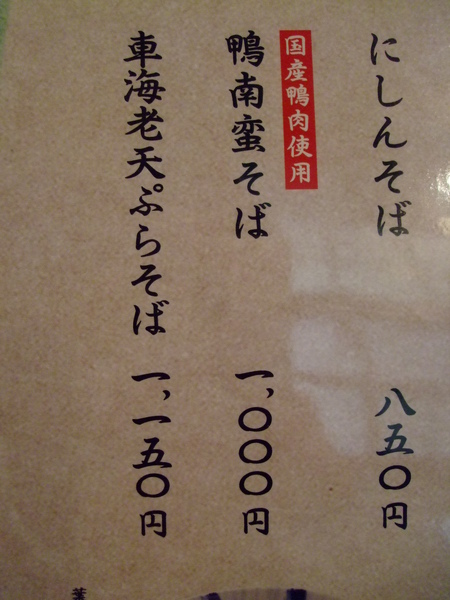 にしんそば 八五〇円
国産鴨肉使用
鴨南蛮そば 一,〇〇〇円
車海老天ぷらそば 一,一五〇円